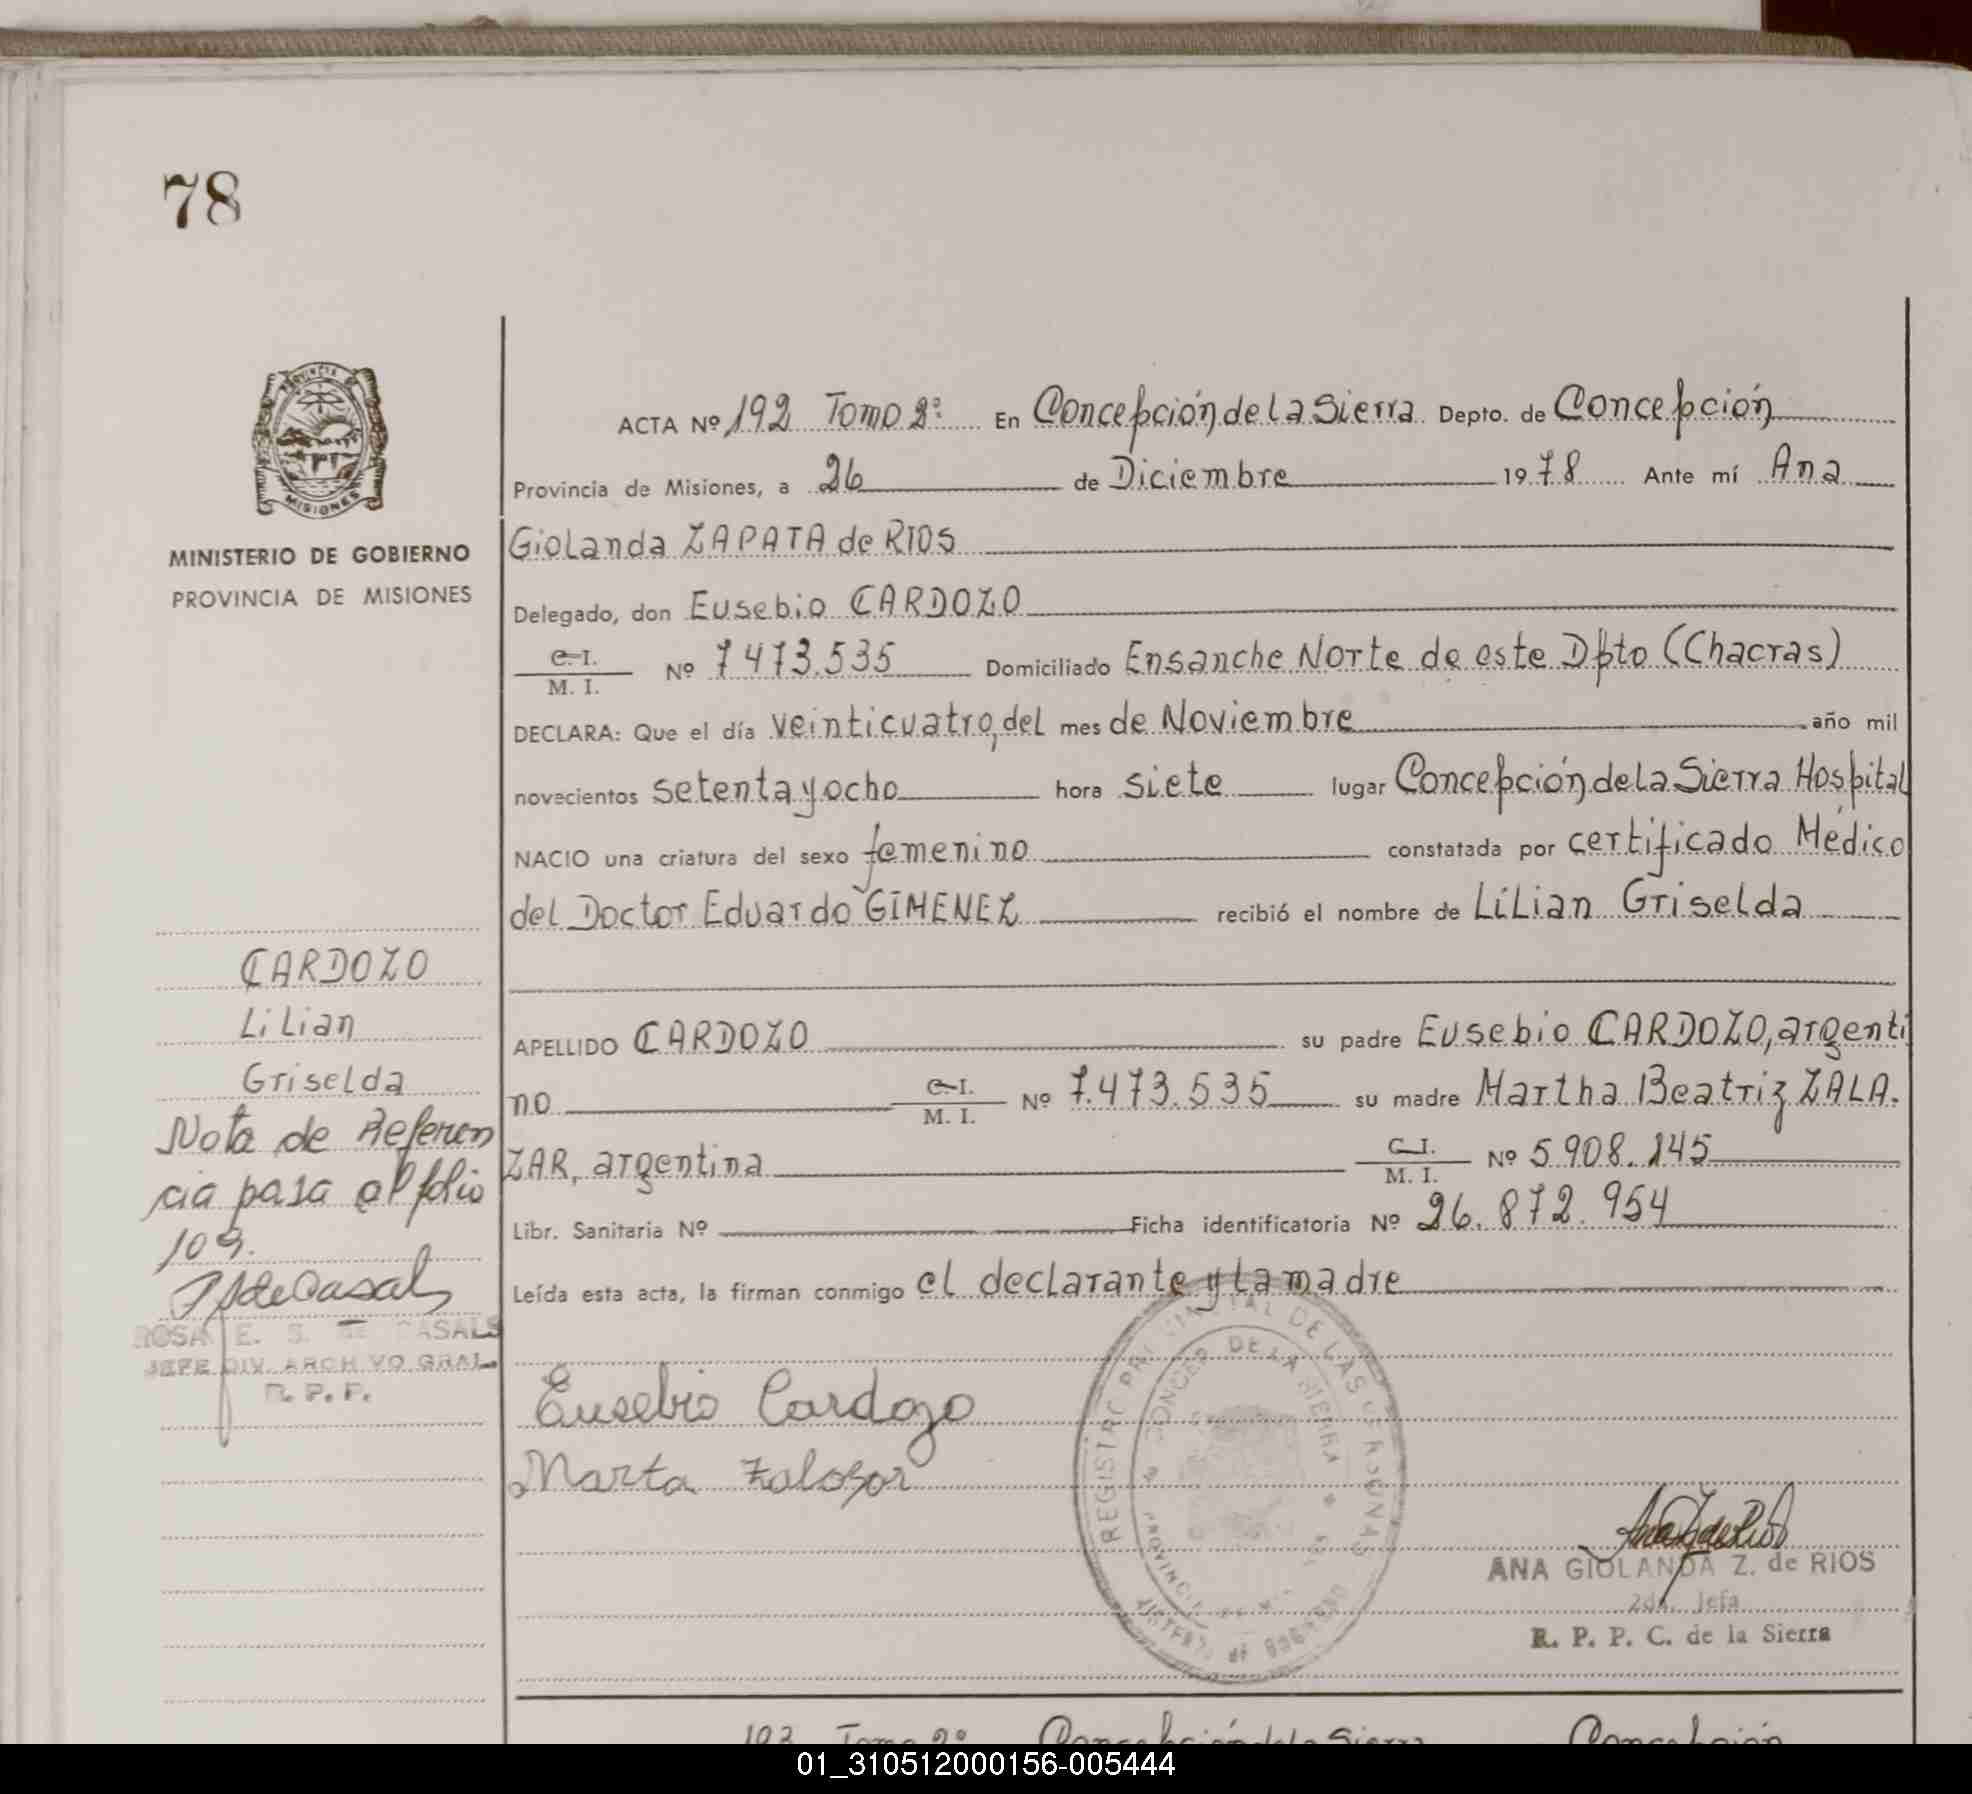 78
PROVINCIA DE
MISIONES
MINISTERIO DE GOBIERNO
PROVINCIA DE MISIONES
ACTA Nº 192 Tomo 2º En Concepción de La Sierra Depto. de Concepción
Provincia de Misiones, a 26 de Diciembre 1978 Ante mí Ana
Giolanda ZAPATA de RIOS
Delegado, don Eusebio CARDOZO
C. I.
M. I. Nº 7473.535 Domiciliado Ensanche Norte de este Dpto (Chacras)
DECLARA: Que el día veinticuatro, del mes de Noviembre año mil
novecientos setenta y ocho hora siete lugar Concepción de La Sierra Hospital
NACIO una criatura del sexo femenino constatada por certificado Médico
del Doctor Eduardo GIMENEZ recibió el nombre de LiLian Griselda
APELLIDO CARDOZO su padre Eusebio CARDOZO, argenti
no C. I.
M. I. Nº 7.473.535 su madre Martha Beatriz ZALA.
ZAR, argentina C. I.
M. I. Nº 5908.145
Libr. Sanitaria Nº Ficha identificatoria Nº 26.872.954
Leída esta acta, la firman conmigo el declarante y la madre
CARDOZO
LiLian
Griselda
Nota de Referen
cia pasa al folio
109.
ROSA E. S. de CASALS
JEFE DIV. ARCHIVO GRAL.
R. P. P.
Eusebio Cardozo
Marta Zalasar
REGISTRO PROVINCIAL DE LAS PERSONAS
CONCEP. DE LA SIERRA
ANA GIOLANDA Z. de RIOS
2da. Jefa
R. P. P. C. de la Sierra
193 Tomo 2º Concepción de la Sierra Concepción
01_310512000156-005444